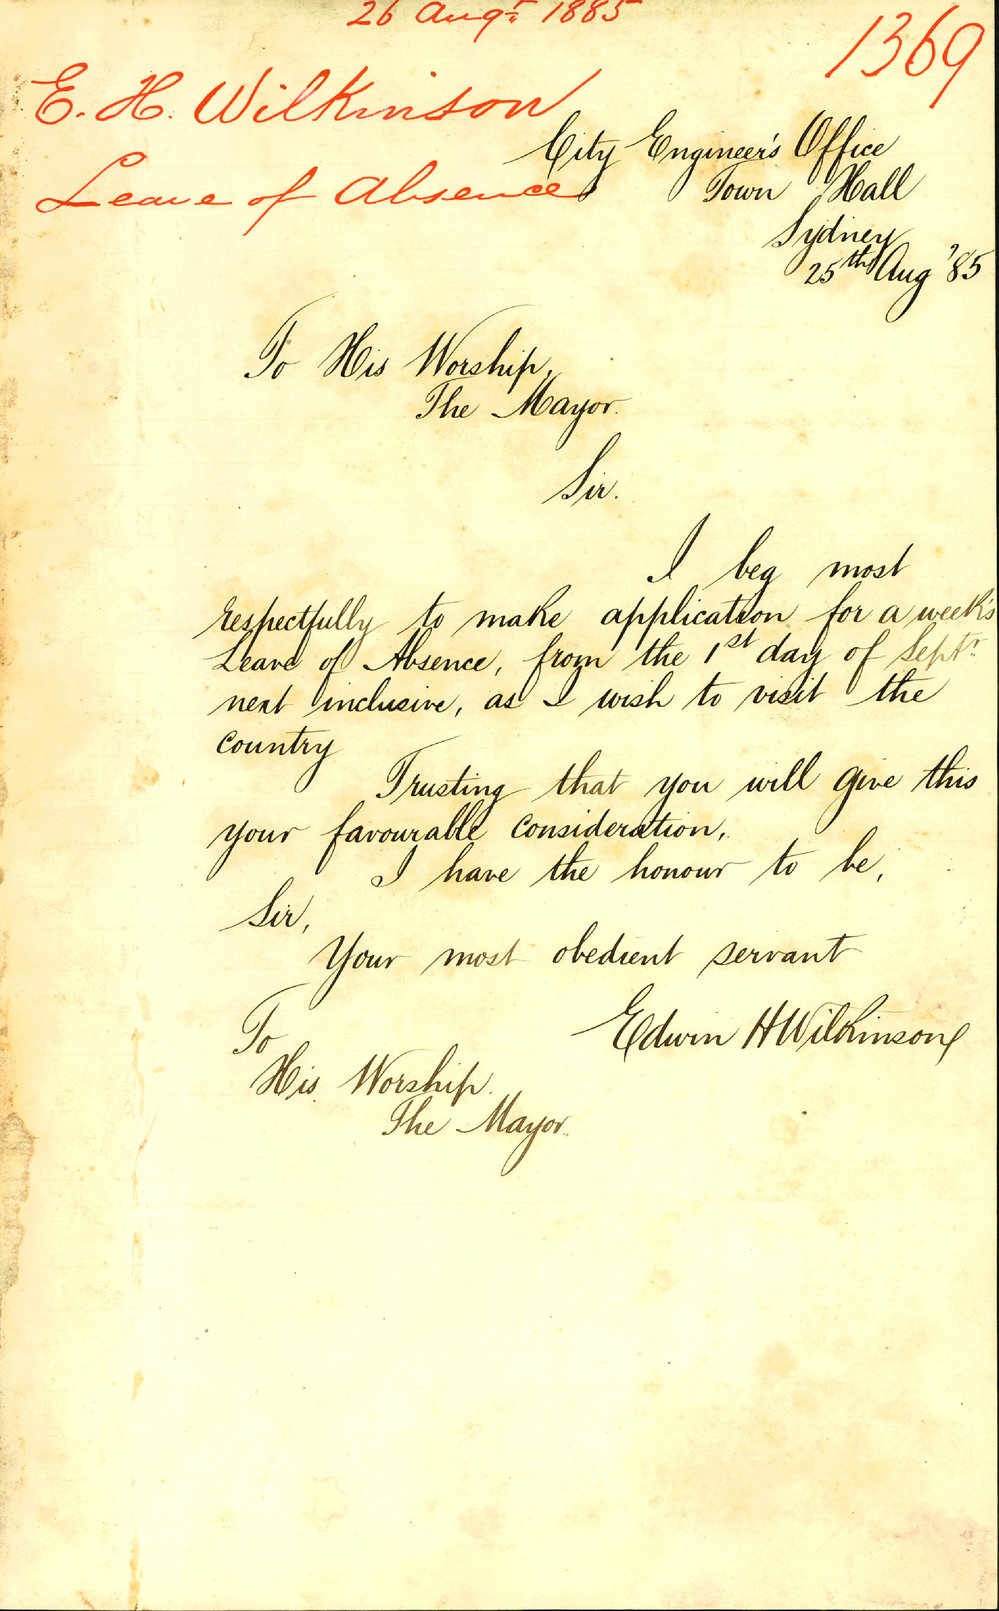 26 Augt 1885
1369
E. H. Wilkinson
Leave of Absence
City Engineer's Office
Town Hall
Sydney
25th Aug '85
To His Worship,
The Mayor.
Sir.
I beg most
respectfully to make application for a week's
Leave of Absence, from the 1st day of Sept.
next inclusive, as I wish to visit the
country
Trusting that you will give this
your favourable consideration,
I have the honour to be,
Sir,
Your most obedient servant
Edwin H Wilkinson
To
His Worship.
The Mayor.